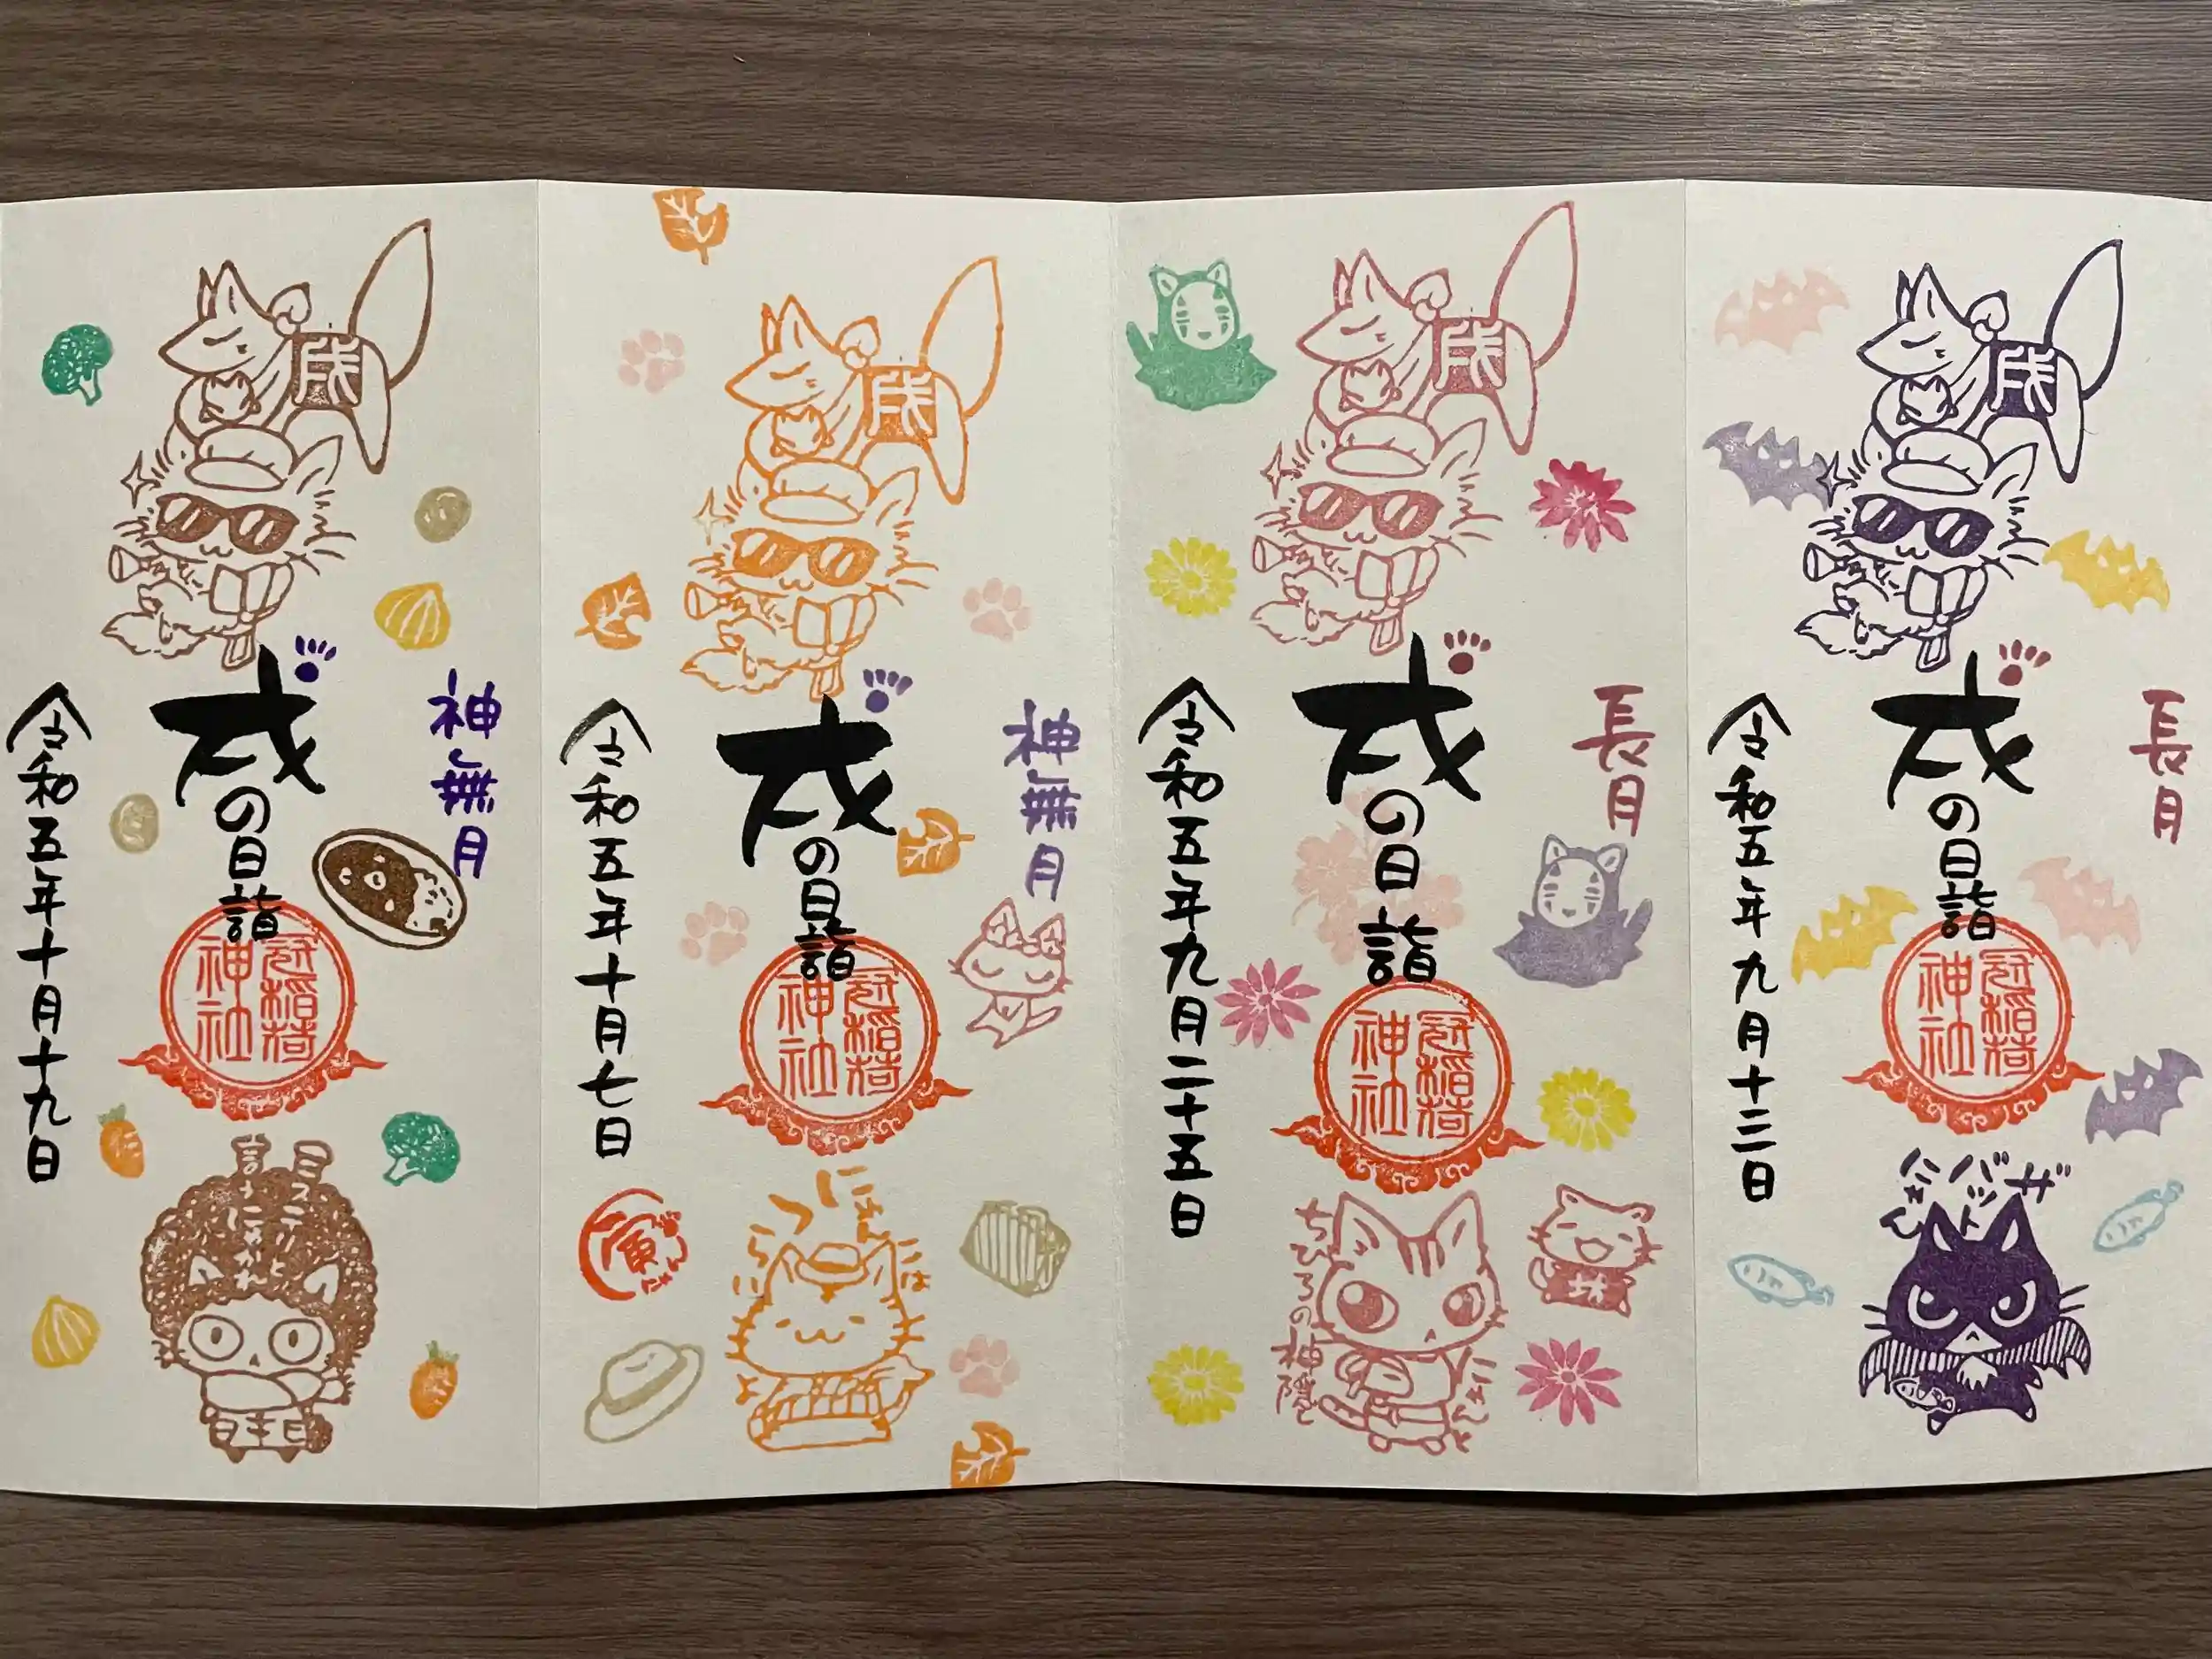 長月
戌
戌の日詣
冠稲荷神社
令和五年九月十三日
バットにゃん
長月
戌
戌の日詣
冠稲荷神社
令和五年九月二十五日
ちひろの神隠し
坊
神無月
戌
戌の日詣
冠稲荷神社
令和五年十月七日
寅
にゃん
神無月
戌
戌の日詣
冠稲荷神社
令和五年十月十九日
ミステリと
言う